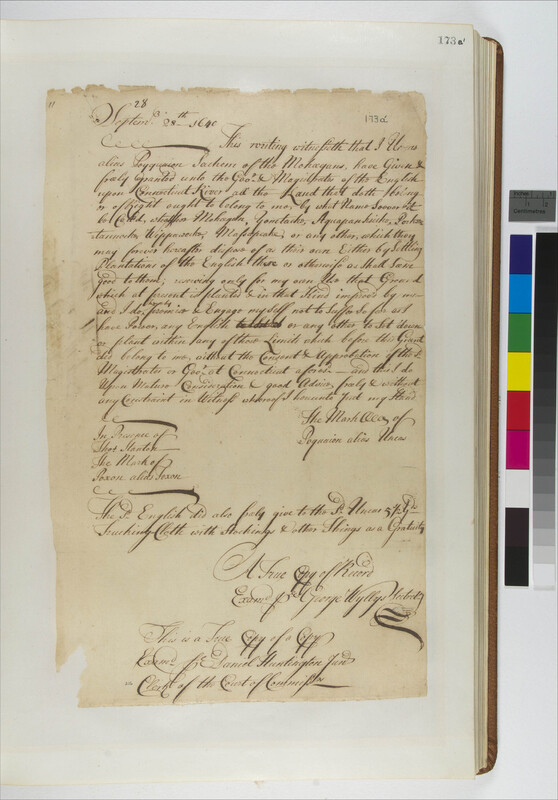 173a
11
28
Septemr 28th 1640
173a
This writing witnesseth that I Uncas
alias Poyquaion Sachem of the Mohegans, have Given &
freely Granted unto the Govr. & Magistrates of the English
upon Connecticut River all the Land that doth belong
or of Right ought to belong to me, by what Name soever it
be Called, whether
or any other, which they
may forever hereafter dispose of as their own Either by Settling
Plantations of the English there or otherwise as shall Seem
good to them; reserving only for my own Use that Ground
which at present is planted & in that Kind improved by me
and I do freely promise & Engage my Self not to Suffer So far as I
have Power, any English or any other to Set down
or plant within any of those Limits which before this Grant
did belong to me, without the Consent & Approbation of the Sd.
Magistrates or Govr. at Connecticut aforesd — and this I do
Upon Mature Consideration & good Advice, freely & without
any Constraint in Witness whereof I hereunto put my Hand
The Mark of
Poquaion alias Uncas
In Presence of
Thos Stanton
The Mark of
Poxon alias Foxon
The Sd. English did also freely give to the Sd. Uncas 5 Yds
Trucking Cloth with Stockings & other Things as a Gratuity
A True Copy of Record
Examd. pr George Wyllys Secretry
This is a True Copy of a Copy
Examd. pr Daniel Huntington Junr
Clerk of the Court of Commissrs
Centimetres